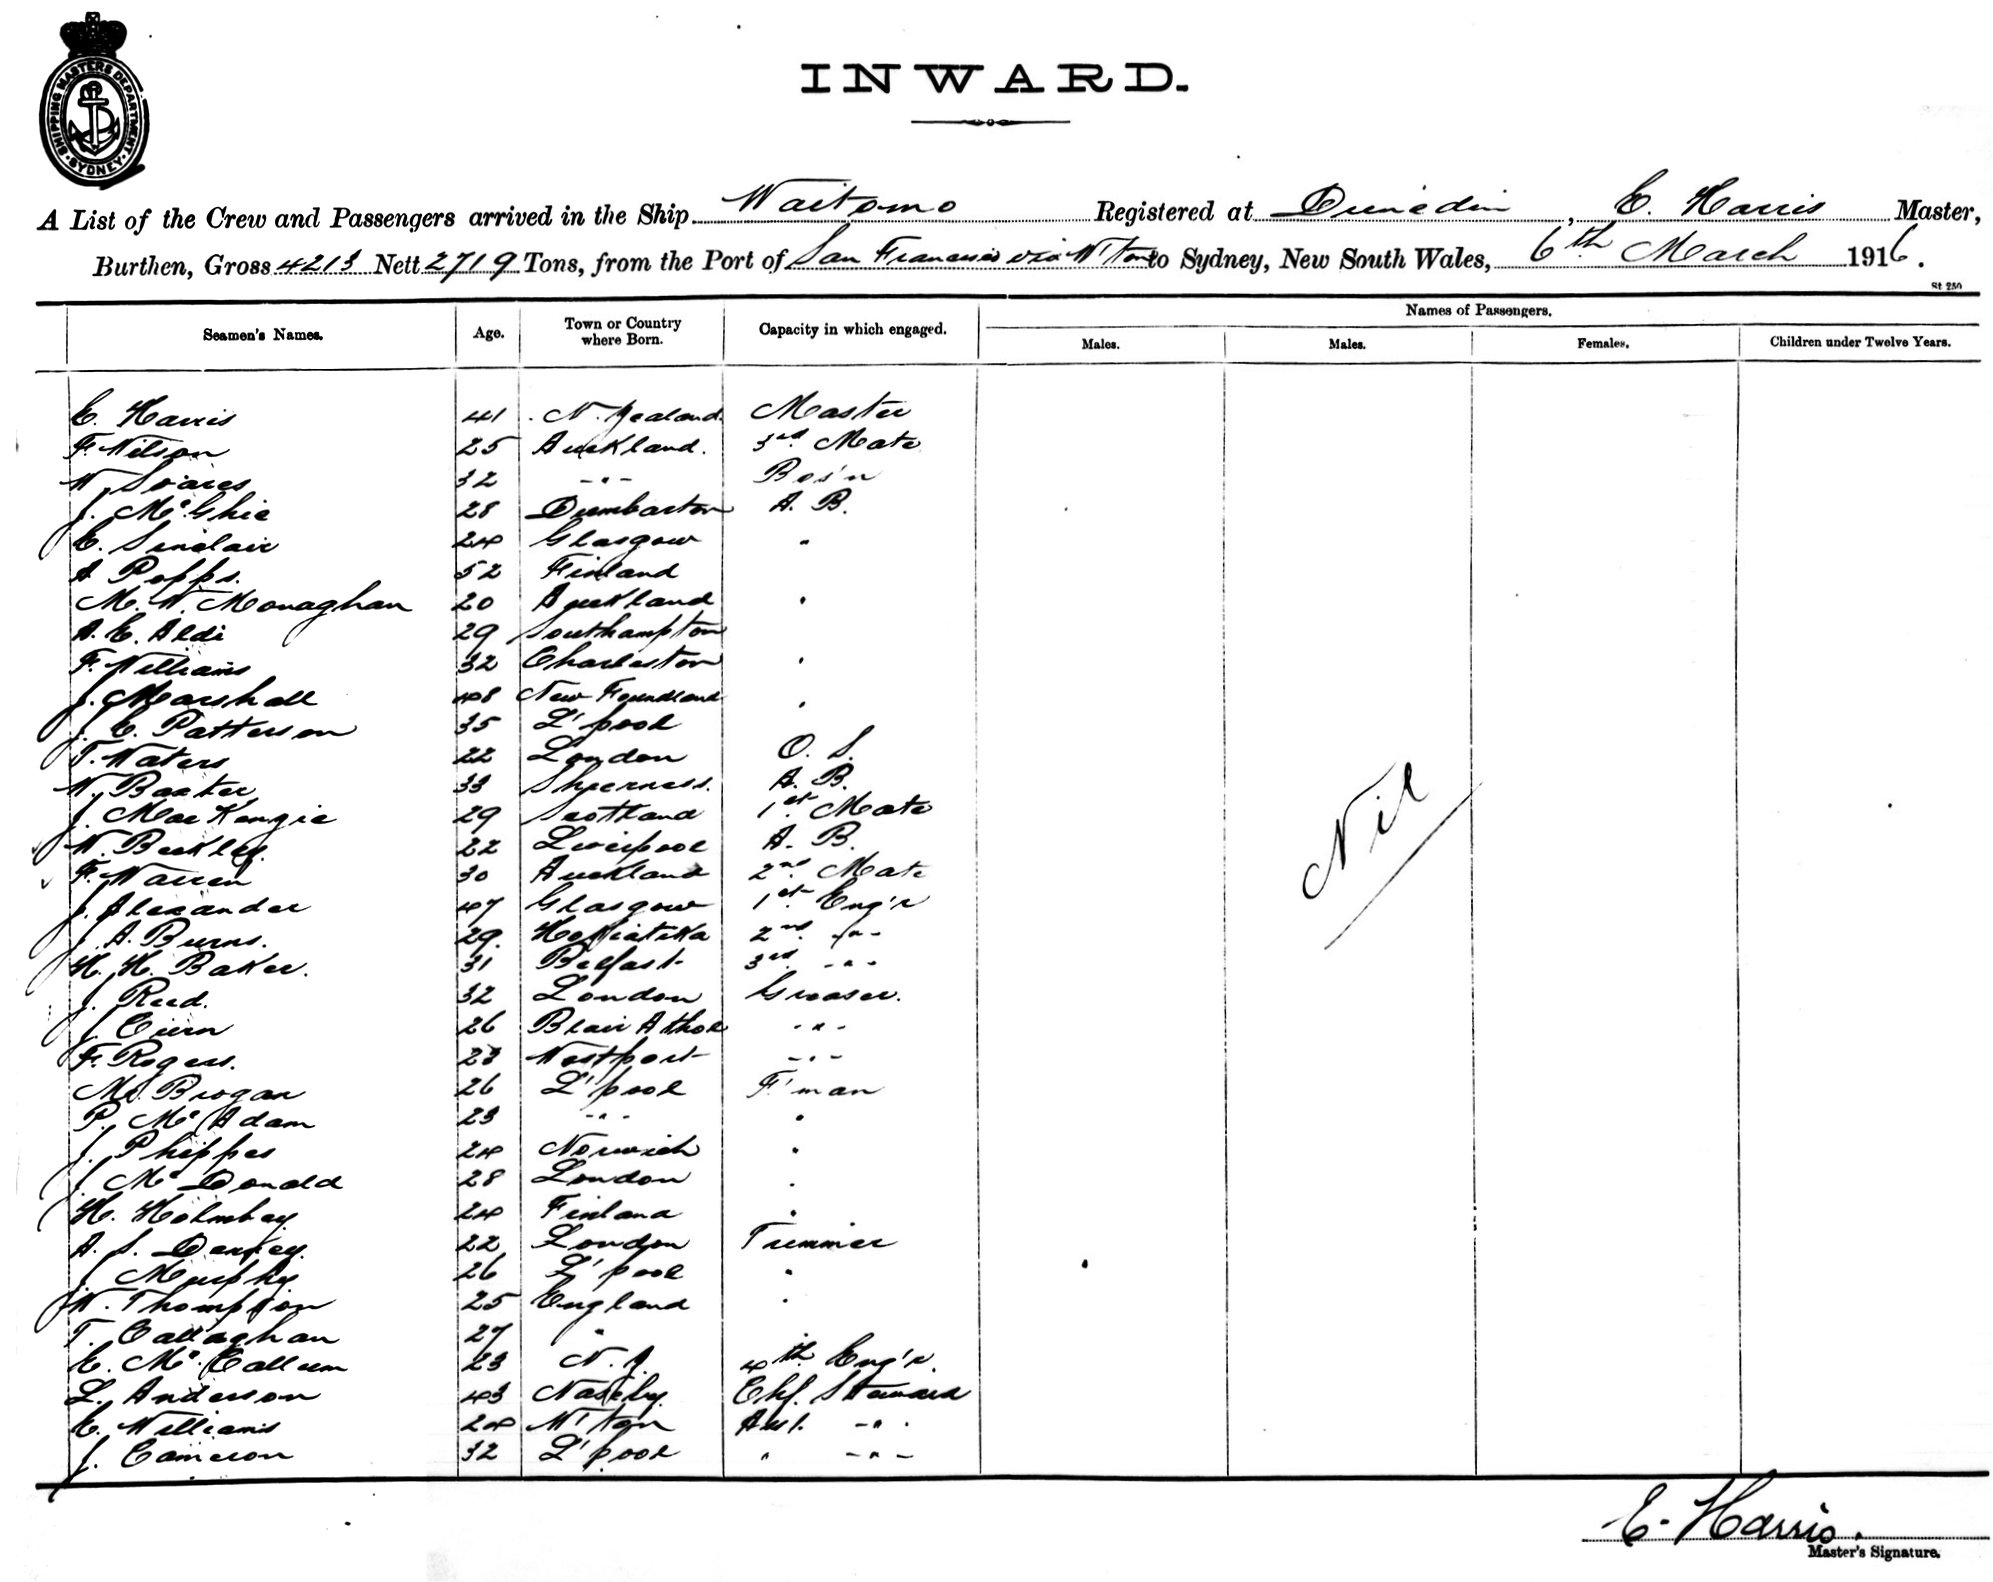 SHIPPING MASTERS DEPARTMENT · SYDNEY ·
INWARD.
A List of the Crew and Passengers arrived in the Ship Waitomo Registered at Dunedin, E. Harris Master,
Burthen, Gross 4213 Nett 2719 Tons, from the Port of San Francisco via W'ton to Sydney, New South Wales, 6th March 1916.
St 250
Seamen's Names. Age. Town or Country where Born. Capacity in which engaged. Names of Passengers.
Males. Males. Females. Children under Twelve Years.
E. Harris 41 N. Zealand. Master
F. Wilson 25 Auckland. 3rd Mate
W. Soares 32 -"- Bos'n
J. McGhie 28 Dumbarton A. B.
E. Sinclair 24 Glasgow "
A. Popps. 52 Finland
M. W. Monaghan 20 Auckland "
A. E. Aldi 29 Southampton
F. Williams 32 Charleston "
J. Marshall 48 New Foundland "
J. C. Patterson 35 L'pool
T. Waters 22 London O. S.
W. Baxter 33 Sheerness. A. B.
J. MacKenzie 29 Scotland 1st Mate
W. Beckley. 22 Liverpool A. B.
F. Warren 30 Auckland 2nd Mate
J. Alexander 47 Glasgow 1st Eng'r
J. A. Burns. 29. Hokiatika 2nd -"-
H. H. Baker. 31 Belfast 3rd -"-
J. Reed. 32 London Greaser.
J. 26 Blair Athol -"-
F. Rogers. 23 Westport -"-
M. Brogan 26 L'pool F'man
P. McAdam 23 -"- "
J. Phippes 24 Norwich "
J. McDonald 28 London "
H. Holmbey 24 Finland "
A. S. 22 London Trimmer
J. Murphy 26 L'pool "
W. Thompson 25 England "
T. Callaghan 27 "
E. McCallum 23 N. Z. 4th Eng'r.
L. Anderson 43 Naseby. Chf. Steward
E. Williams 24 W'ton Ast. -"-
J. Cameron 32 L'pool " -"-
Nil
E. Harris.
Master's Signature.